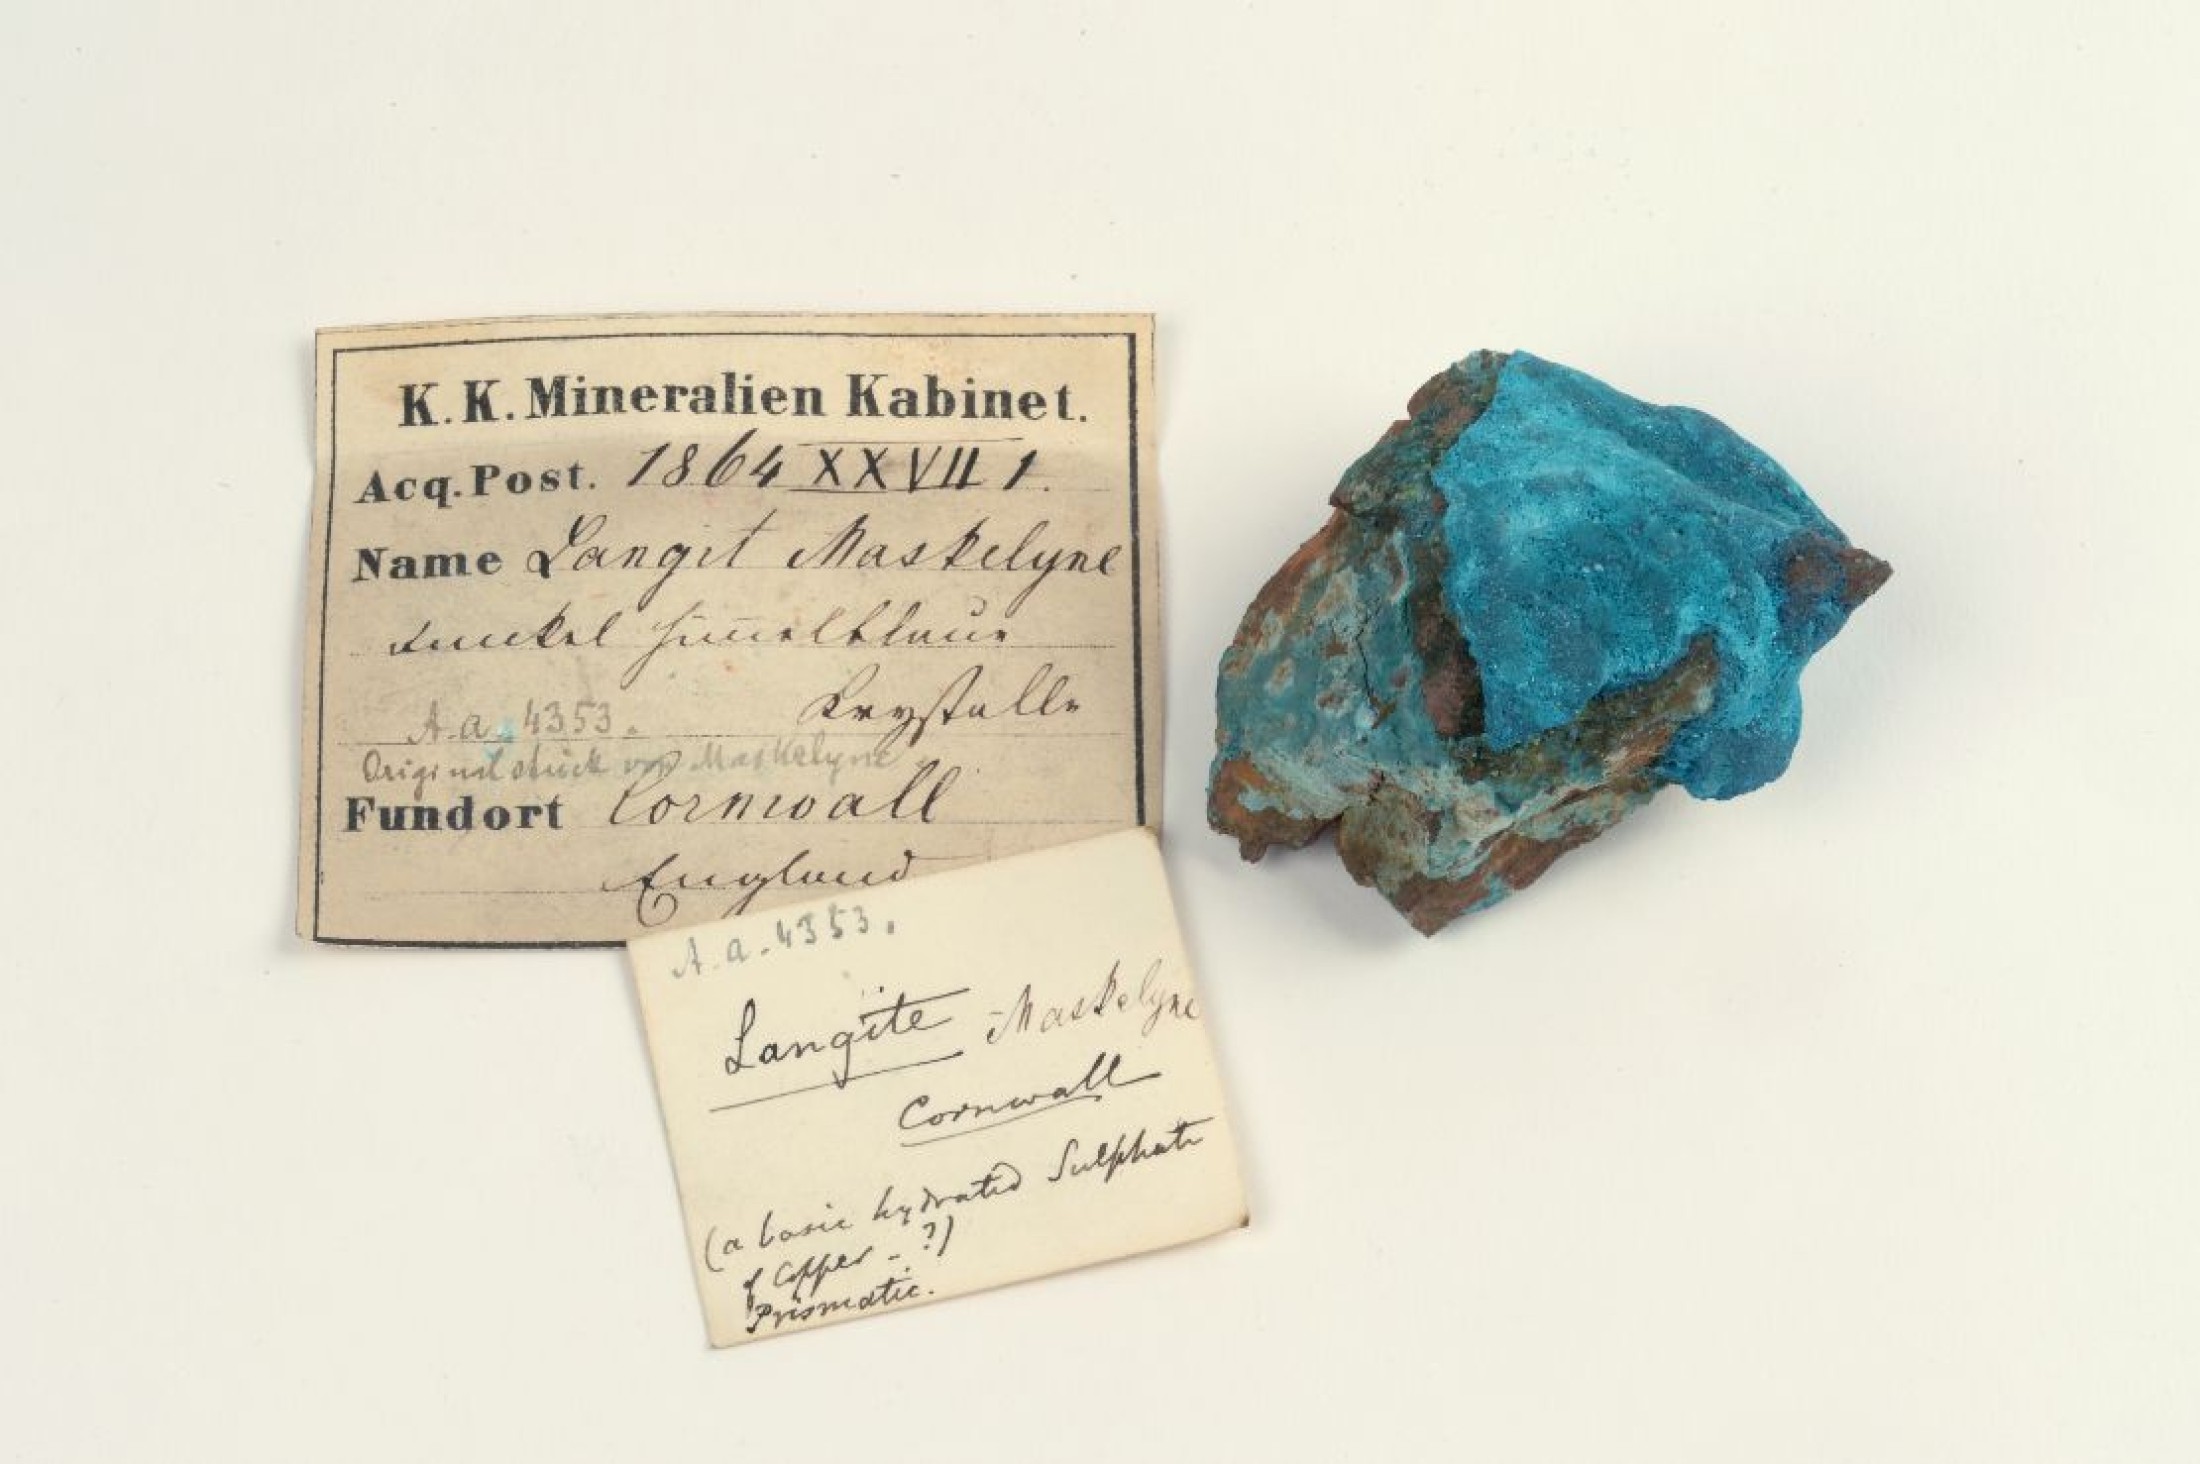 K. K. Mineralien Kabinet.
Acq. Post. 1864 XXVII 1.
Name Langit Maskelyne
dunkel him̅elblaue
Krystalle
A.a. 4353.
Originalstück von Maskelyne
Fundort Cornwall
England
A.a. 4353.
Langite Maskelyne
Cornwall
(a basic hydrated Sulphate
of Copper - ?)
Prismatic.